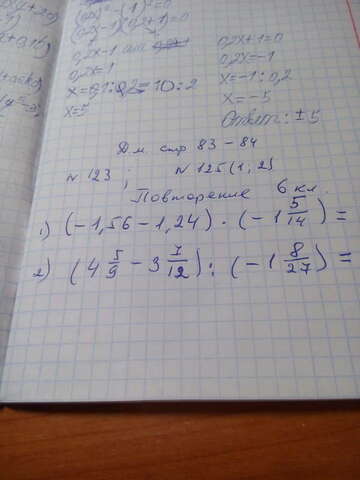 (0,2x)²-(1)²=0
(0,2x-1)(0,2+1)=0
0,2x-1 или
0,2x=1
x=0,1:0,2=10:2
x=5
0,2x+1=0
0,2x=-1
x=-1:0,2
x=-5
Ответ: ±5
Д.м. стр 83-84
№123; №125(1,2)
Повторение 6 кл.
1) (-1,56-1,24)·(-1 5/14)=
2) (4 5/9 - 3 7/12):(-1 8/27)=